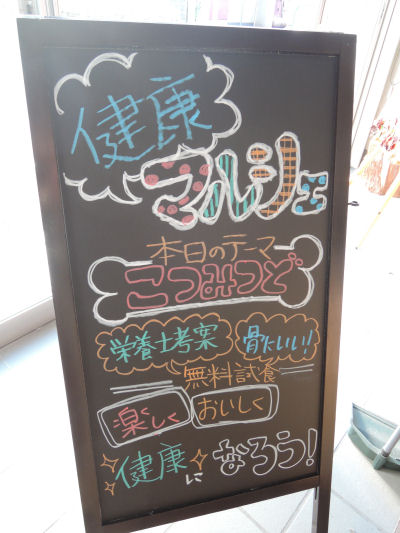 健康
マルシェ
本日のテーマ
こつみつど
栄養士考案 骨にいい!
無料試食
楽しく おいしく
健康になろう!